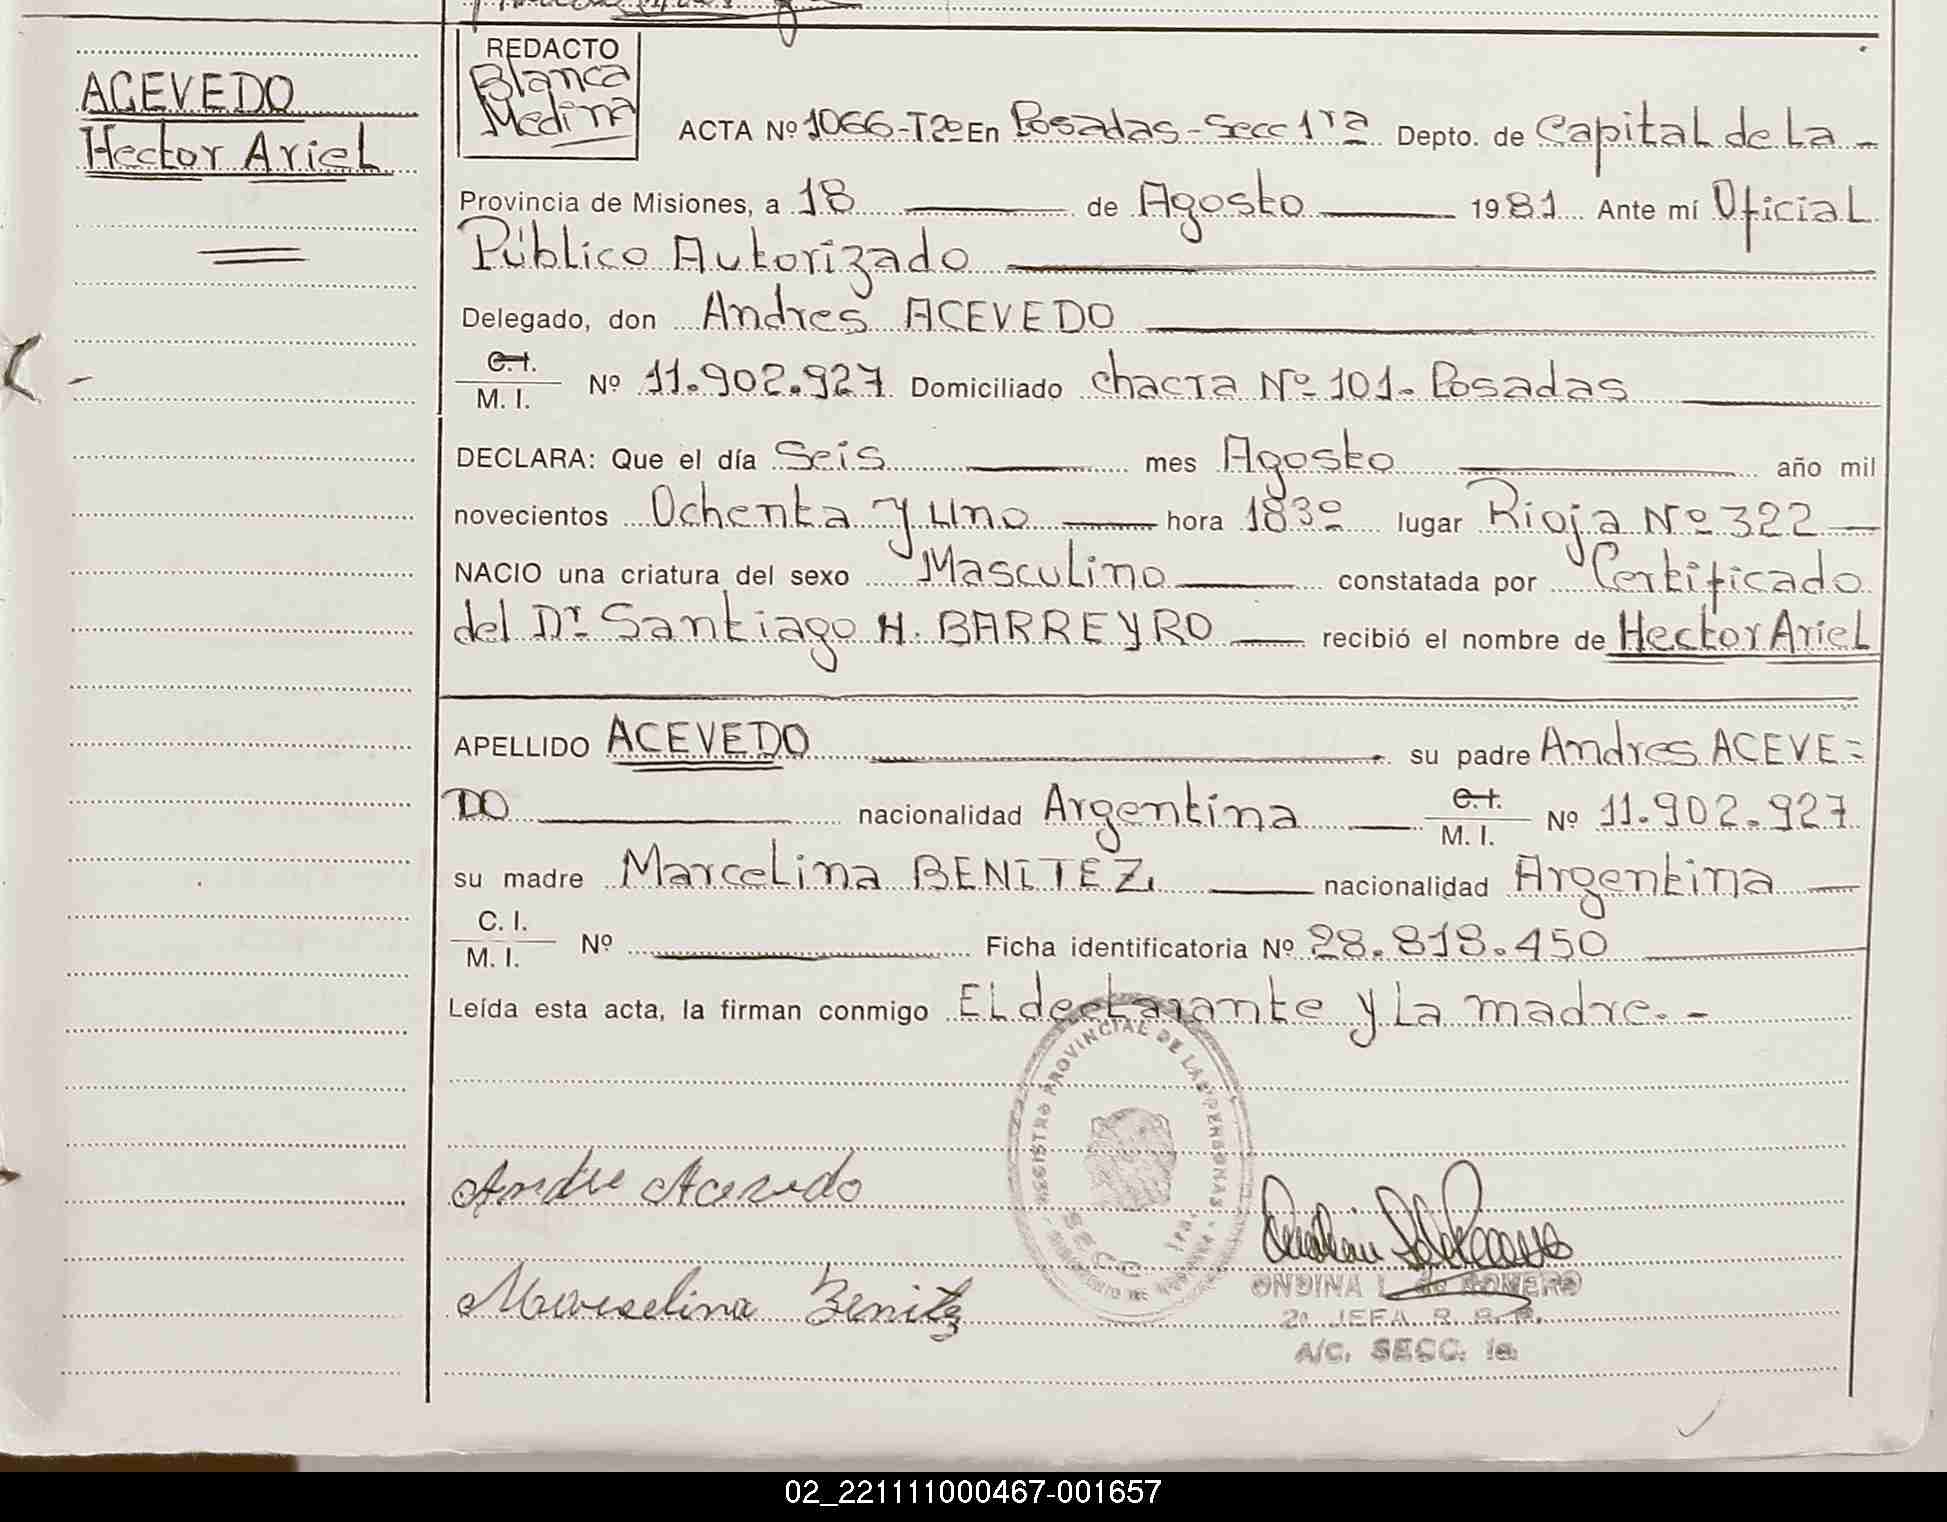 ACEVEDO
Hector Ariel
REDACTO
Blanca
Medina
ACTA Nº 1066-Tº2º En Posadas-Secc 1ra Depto. de Capital de La -
Provincia de Misiones, a 18 de Agosto 1981 Ante mí Oficial
Público Autorizado
Delegado, don Andres ACEVEDO
C.I.
M. I. Nº 11.902.927 Domiciliado chacra Nº 101. Posadas
DECLARA: Que el día Seis mes Agosto año mil
novecientos Ochenta y Uno hora 183º lugar Rioja Nº 322
NACIO una criatura del sexo Masculino constatada por Certificado
del Dr Santiago H. BARREYRO recibió el nombre de Hector Ariel
APELLIDO ACEVEDO su padre Andres ACEVE=
DO nacionalidad Argentina C.I.
M. I. Nº 11.902.927
su madre Marcelina BENITEZ nacionalidad Argentina
C. I.
M. I. Nº Ficha identificatoria Nº 28.818.450
Leída esta acta, la firman conmigo El declarante y La madre. -
REGISTRO PROVINCIAL DE LAS PERSONAS
SECC 1ra
Andre Acevedo
Marcelina Benitez
ONDINA L. de ROMERO
2º JEFA R. P. P.
A/C. SECC. 1a.
02_221111000467-001657